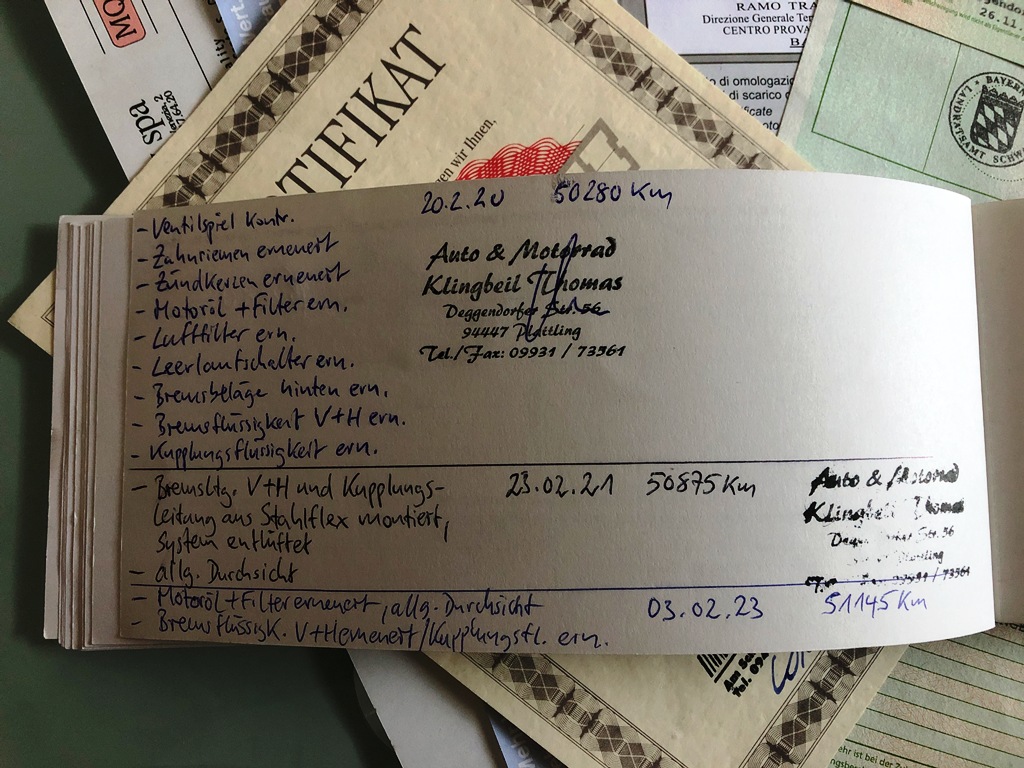 MO
spa
TIFIKAT
en wir Ihnen,
RAMO TRA
Direzione Generale Ter
CENTRO PROVA
BA
o di omologazio
di scarico
ficate
26.11.
BAYER
LANDRATSAMT SCHW
- Ventilspiel kontr.
20.2.20 50280 Km
- Zahnriemen erneuert
- Zündkerzen erneuert
- Motoröl + Filter ern.
- Luftfilter ern.
- Leerlaufschalter ern.
- Bremsbeläge hinten ern.
- Bremsflüssigkeit V+H ern.
- Kupplungsflüssigkeit ern.
Auto & Motorrad
Klingbeil Thomas
Deggendorfer Str. 56
94447 Plattling
Tel./Fax: 09931 / 73561
- Bremsltg. V+H und Kupplungs-
leitung aus Stahlflex montiert,
System entlüftet
- allg. Durchsicht
23.02.21 50875 Km
Auto & Motorrad
Klingbeil Thomas
Str. 56
Plattling
73561
- Motoröl + Filter erneuert, allg. Durchsicht
03.02.23 51145 Km
- Bremsflüssigk. V+H erneuert / Kupplungsfl. ern.
Tel. 09
ehr ist bei der Zu